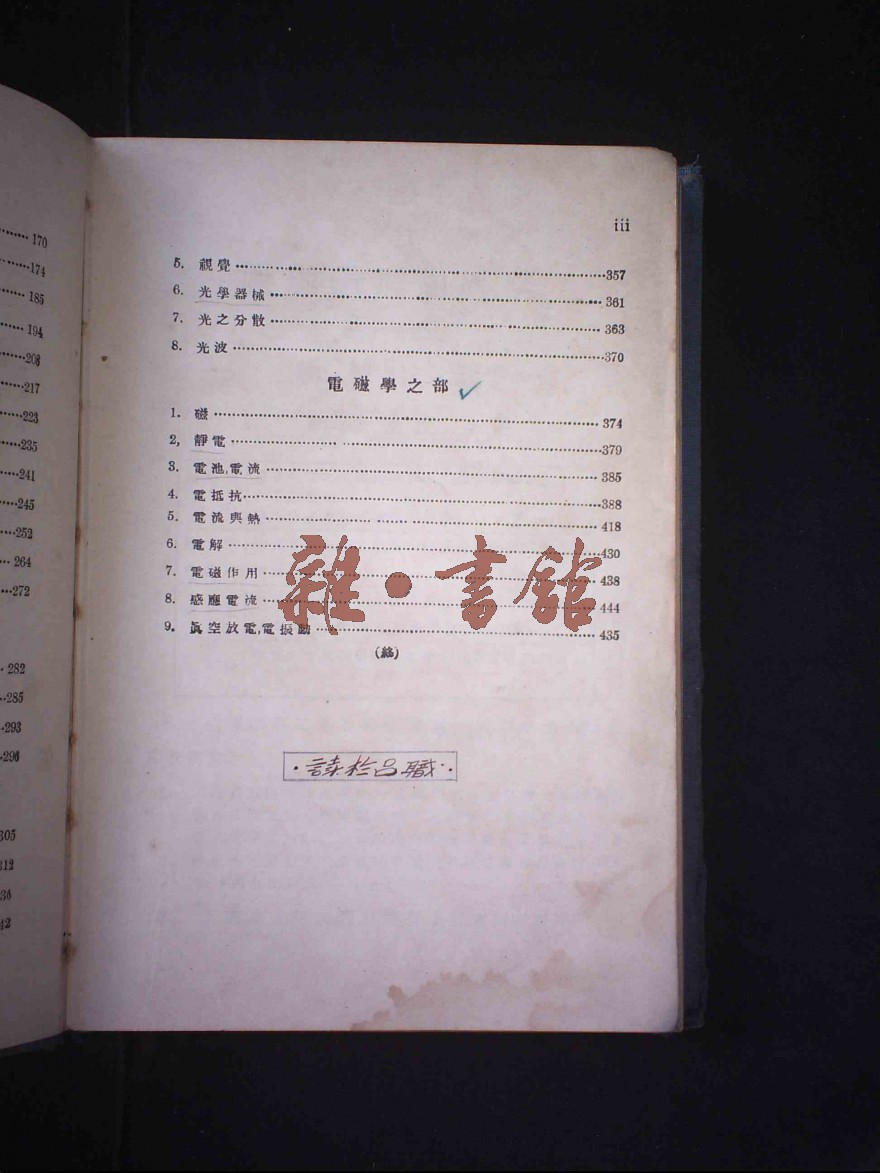 170
174
185
194
208
217
223
235
241
245
252
264
272
282
285
293
296
305
312
iii
5. 視覺 357
6. 光學器械 361
7. 光之分散 363
8. 光波 370
電磁學之部 ✓
1. 磁 374
2, 靜電 379
3. 電池,電流 385
4. 電抵抗 388
5. 電流與熱 418
6. 電解 430
7. 電磁作用 438
8. 感應電流 444
9. 眞空放電,電振動 435
(終)
雜·書館
·讀於呂職·